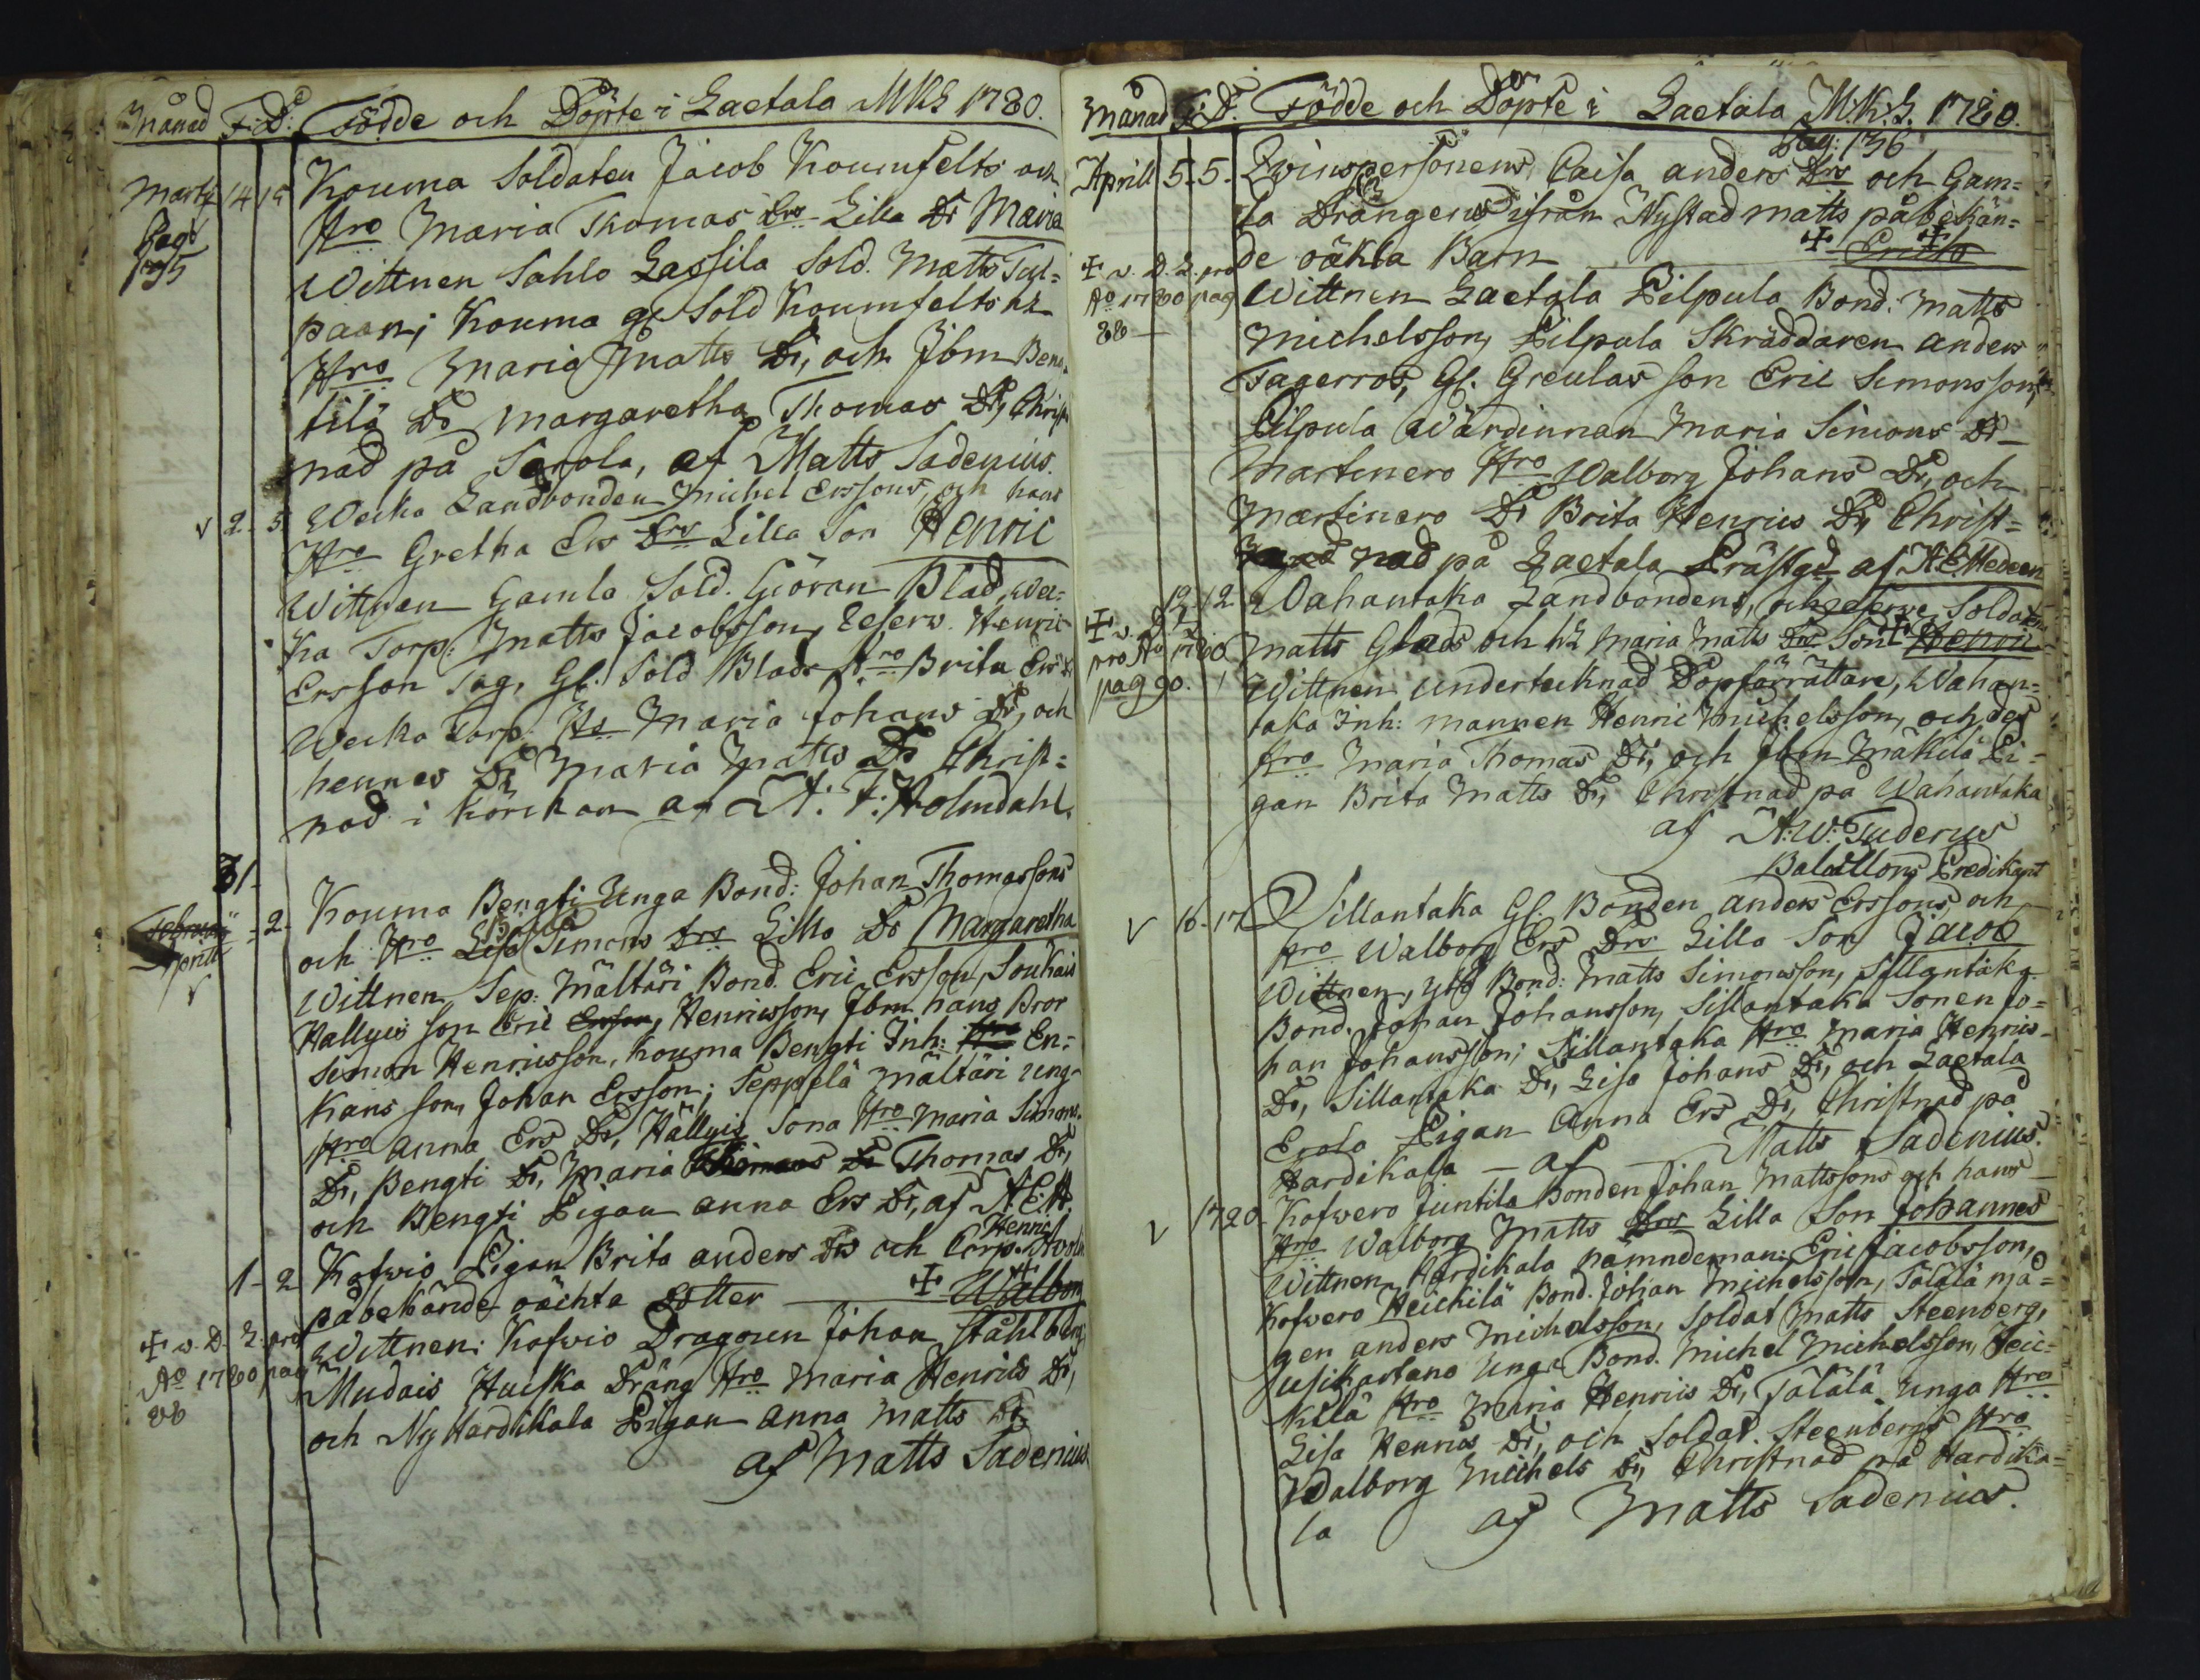 Månad F: D: Födde och Döpte i Laetala MKS 1780.
Martz 14 15 Kouma Soldaten Jacob Koumfelts och
Pag: 135
Hro Maria Thomas Drs Lilla Dr Maria
Wittnen Sahlo Lassila Sold. Matts Tul=
paan; Kouma gl Sold Koumfelts hz
Hro Maria Matts Dr, och Jbm Bena
tilä Dr Margaretha Thomas Dr, Christ
nad på Sarola, af Matts Sadenius.
√ 2- 5. Wecka Landbonden Michel Erssons, och hans
Hro Gretha Ers Drs Lilla Son Henric
Wittnen Gamla Sold. Giöran Blad, Wec=
ka Torp: Matts Jacobsson, Reserv. Henric
Ersson Tag, Gl. Sold Blads Hro Brita Ers Dr
Wecka Torp. Ho Maria Johans Dr, och
hennes Dr Maria Matts Dr Christ=
nad i Körckan af A. F: Holmdahl.
31-
Februarii Aprill √ - 2- Kouma Bengti Unga Bond: Johan Thomassons
och Hro Lisa Simons Drs Lilla Dr Margaretha
Wittnen, Sep: Mältäri Bond. Eric Ersson, Soukais
Hallyis son Eric Ersson, Henricsson, Jbm hans Bror
Simon Henricsson, Kouma Bengti Inh: Hro En=
kans son, Johan Ersson; Seppelä Mältäri Ung-
Hro Anna Ers Dr, Hällyis Sona Hro Maria Simons
Dr, Bengti Dr, Maria Thomas Dr Thomas Dr,
och Bengti Pigan Anna Ers Dr, af A: E: H.
1- 2 Kofwio Pigan Brita Anders Drs och Corp. Henric
påbekände oächta Dotter Walborg
+ v. D. L. pro Ao 1780 pag 88
Wittnen: Kofwio Dragoun Johan Stählberg
Mudais Huiska Dräng Hro Maria Henrics Dr,
och Ny Hardikala Pigan Anna Matts Dr,
af Matts Sadenius
Månad F: D. Födde och Döpte i Laetala M:K:S. 1780.
Pag: 136
Aprill 5. 5. Qwinspersonens Caisa Anders Drs och Gam=
la Drängens ifrån Nystad Matts påbekän=
de oäkta Barn Ericts
+ v. D. L. pro Ao 1780 pag 88-
Wittnen Laetala Pilpula Bond: Matts
Michelsson, Pilpula Skräddaren Anders
Fagerros, Gl. Greulas son Eric Simonsson,
Pilpula Wärdinnan Maria Simons Dr-
Martinero Hro Walborg Johans Dr, och
Martinero Dr Brita Henrics Dr, Christ=
nad på Laetala Prästgd af A: E. Hedeen
12 12 Wahantaka Landbondens, och Reserve Soldaten
+ v. D. L. pro Ao 1780 pag 90.
Matts Glads och hz Maria Matts Drs Son Henric
Wittnen undertecknad Dopförrättare, Wahan=
taka Inh: mannen Henric Michelsson, och des
Hro Maria Thomas Dr, och Jbm Mäkilä Pi=
gan Brita Matts Dr, Christnad på Wahantaka
af A: W: Tuderus
Bataillons Predikant
√ 16. 17. Sillantaka Gl. Bonden Anders Erssons och
Hro Walborg Ers Drs Lilla Son Jacob
Wittnen, Yttö Bond: Matts Simonsson, Sillantaka
Bond. Johan Johansson, Sillantaka Sonen Jo=
han Johansson; Sillantaka Hro Maria Henrics-
Dr, Sillantaka Dr, Lisa Johans Dr, och Laetala
Erola Pigan Anna Ers Dr, Christnad på
Hardikala - af - Matts Sadenius.
√ 17 20. Kofwero Juntila Bonden Johan Mattssons och hans
Hro Walborg Matts Drs Lilla Son Johannes
Wittnen Hardikala nämndeman: Eric Jacobsson,
Kofwero Heickilä Bond. Johan Michelsson, Tälälä mjä=
gen Anders Michelsson, Soldat Matts Steenberg,
Jusikartano Unga Bond. Michel Michelsson, Heic=
kilä Hro Maria Henrics Dr, Tälälä Unga Hro
Lisa Henrics Dr, och Soldat Steenbergs Hro
Walborg Michels Dr, Christnad på Hardika=
la af Matts Sadenius.